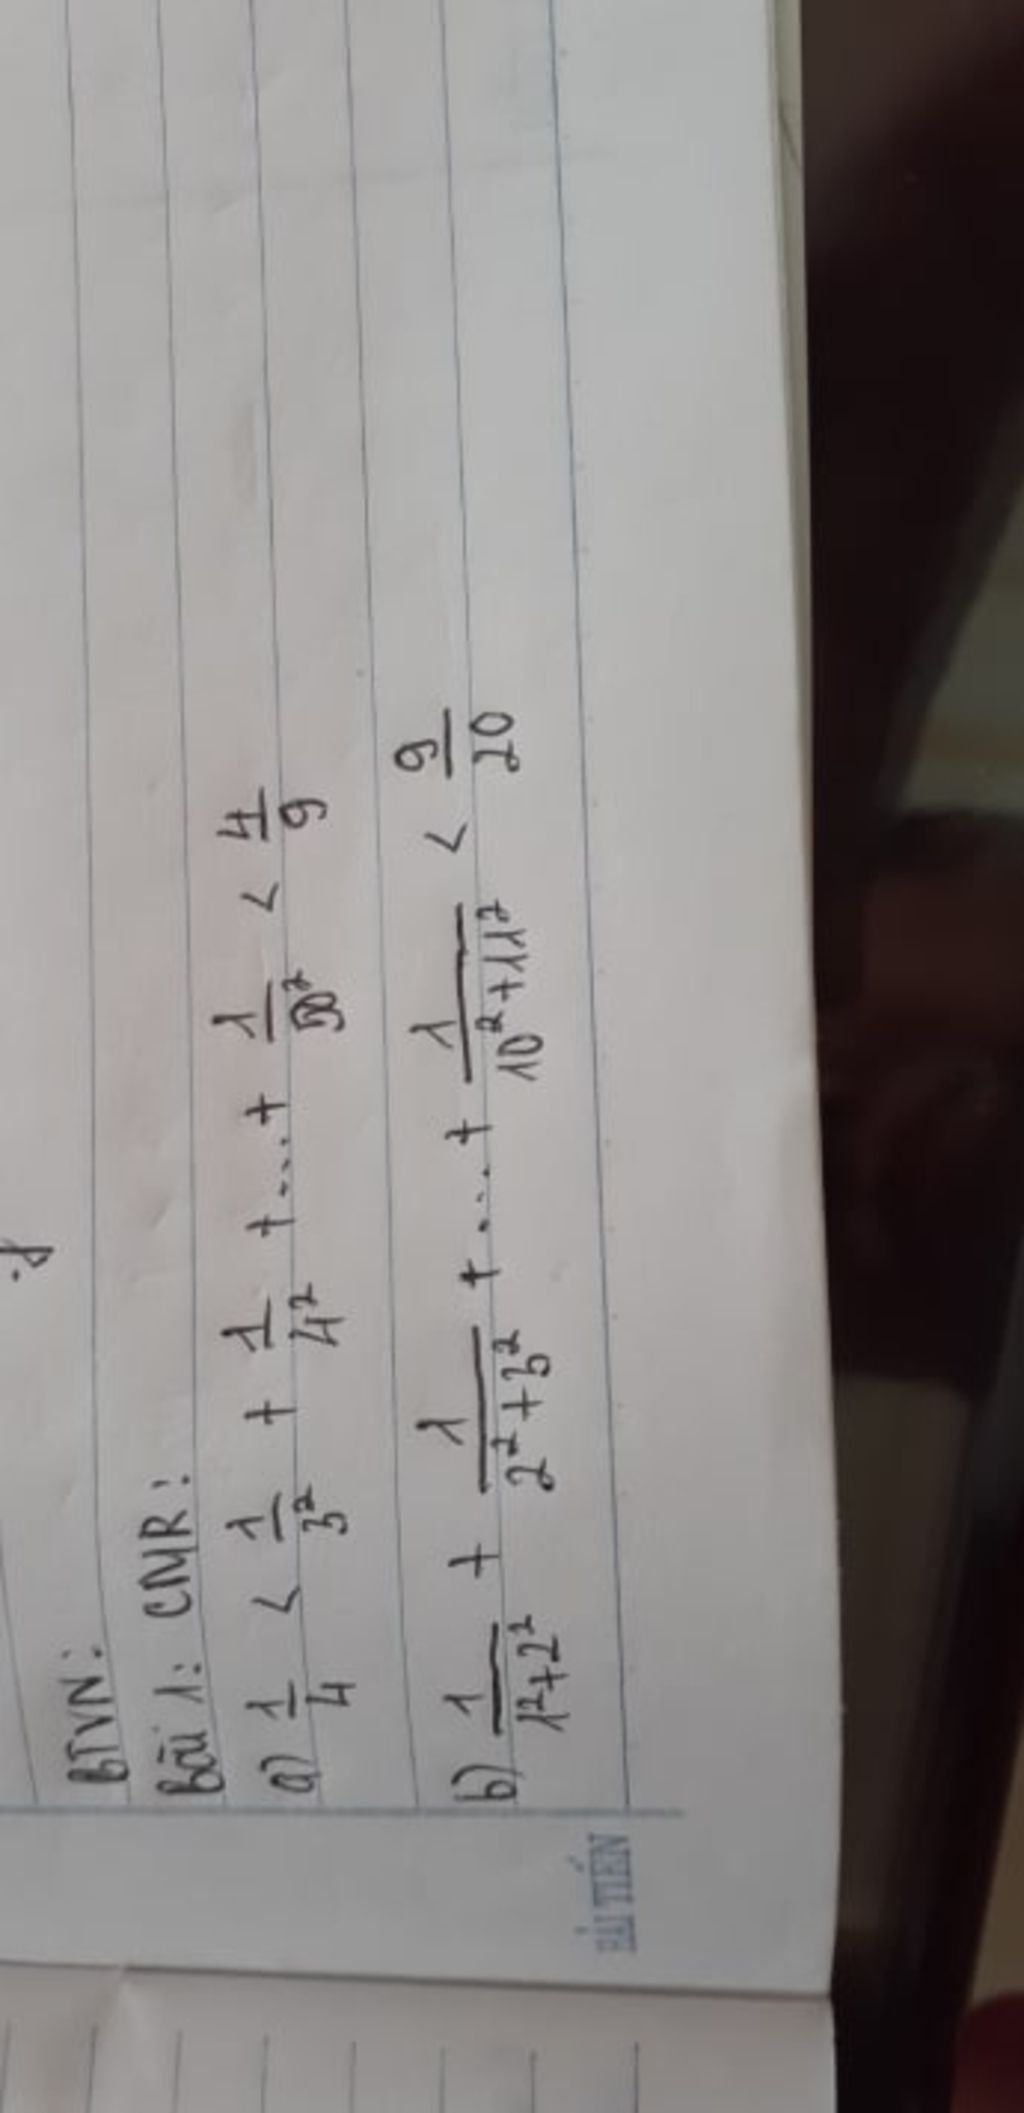 BTVN:
Bài 1: CMR:
a) 1/4 < 1/3² + 1/4² + ... + 1/50² < 4/9
b) 1/1²+2² + 1/2²+3² + ... + 1/10²+11² < 9/20
HẢI TIẾN